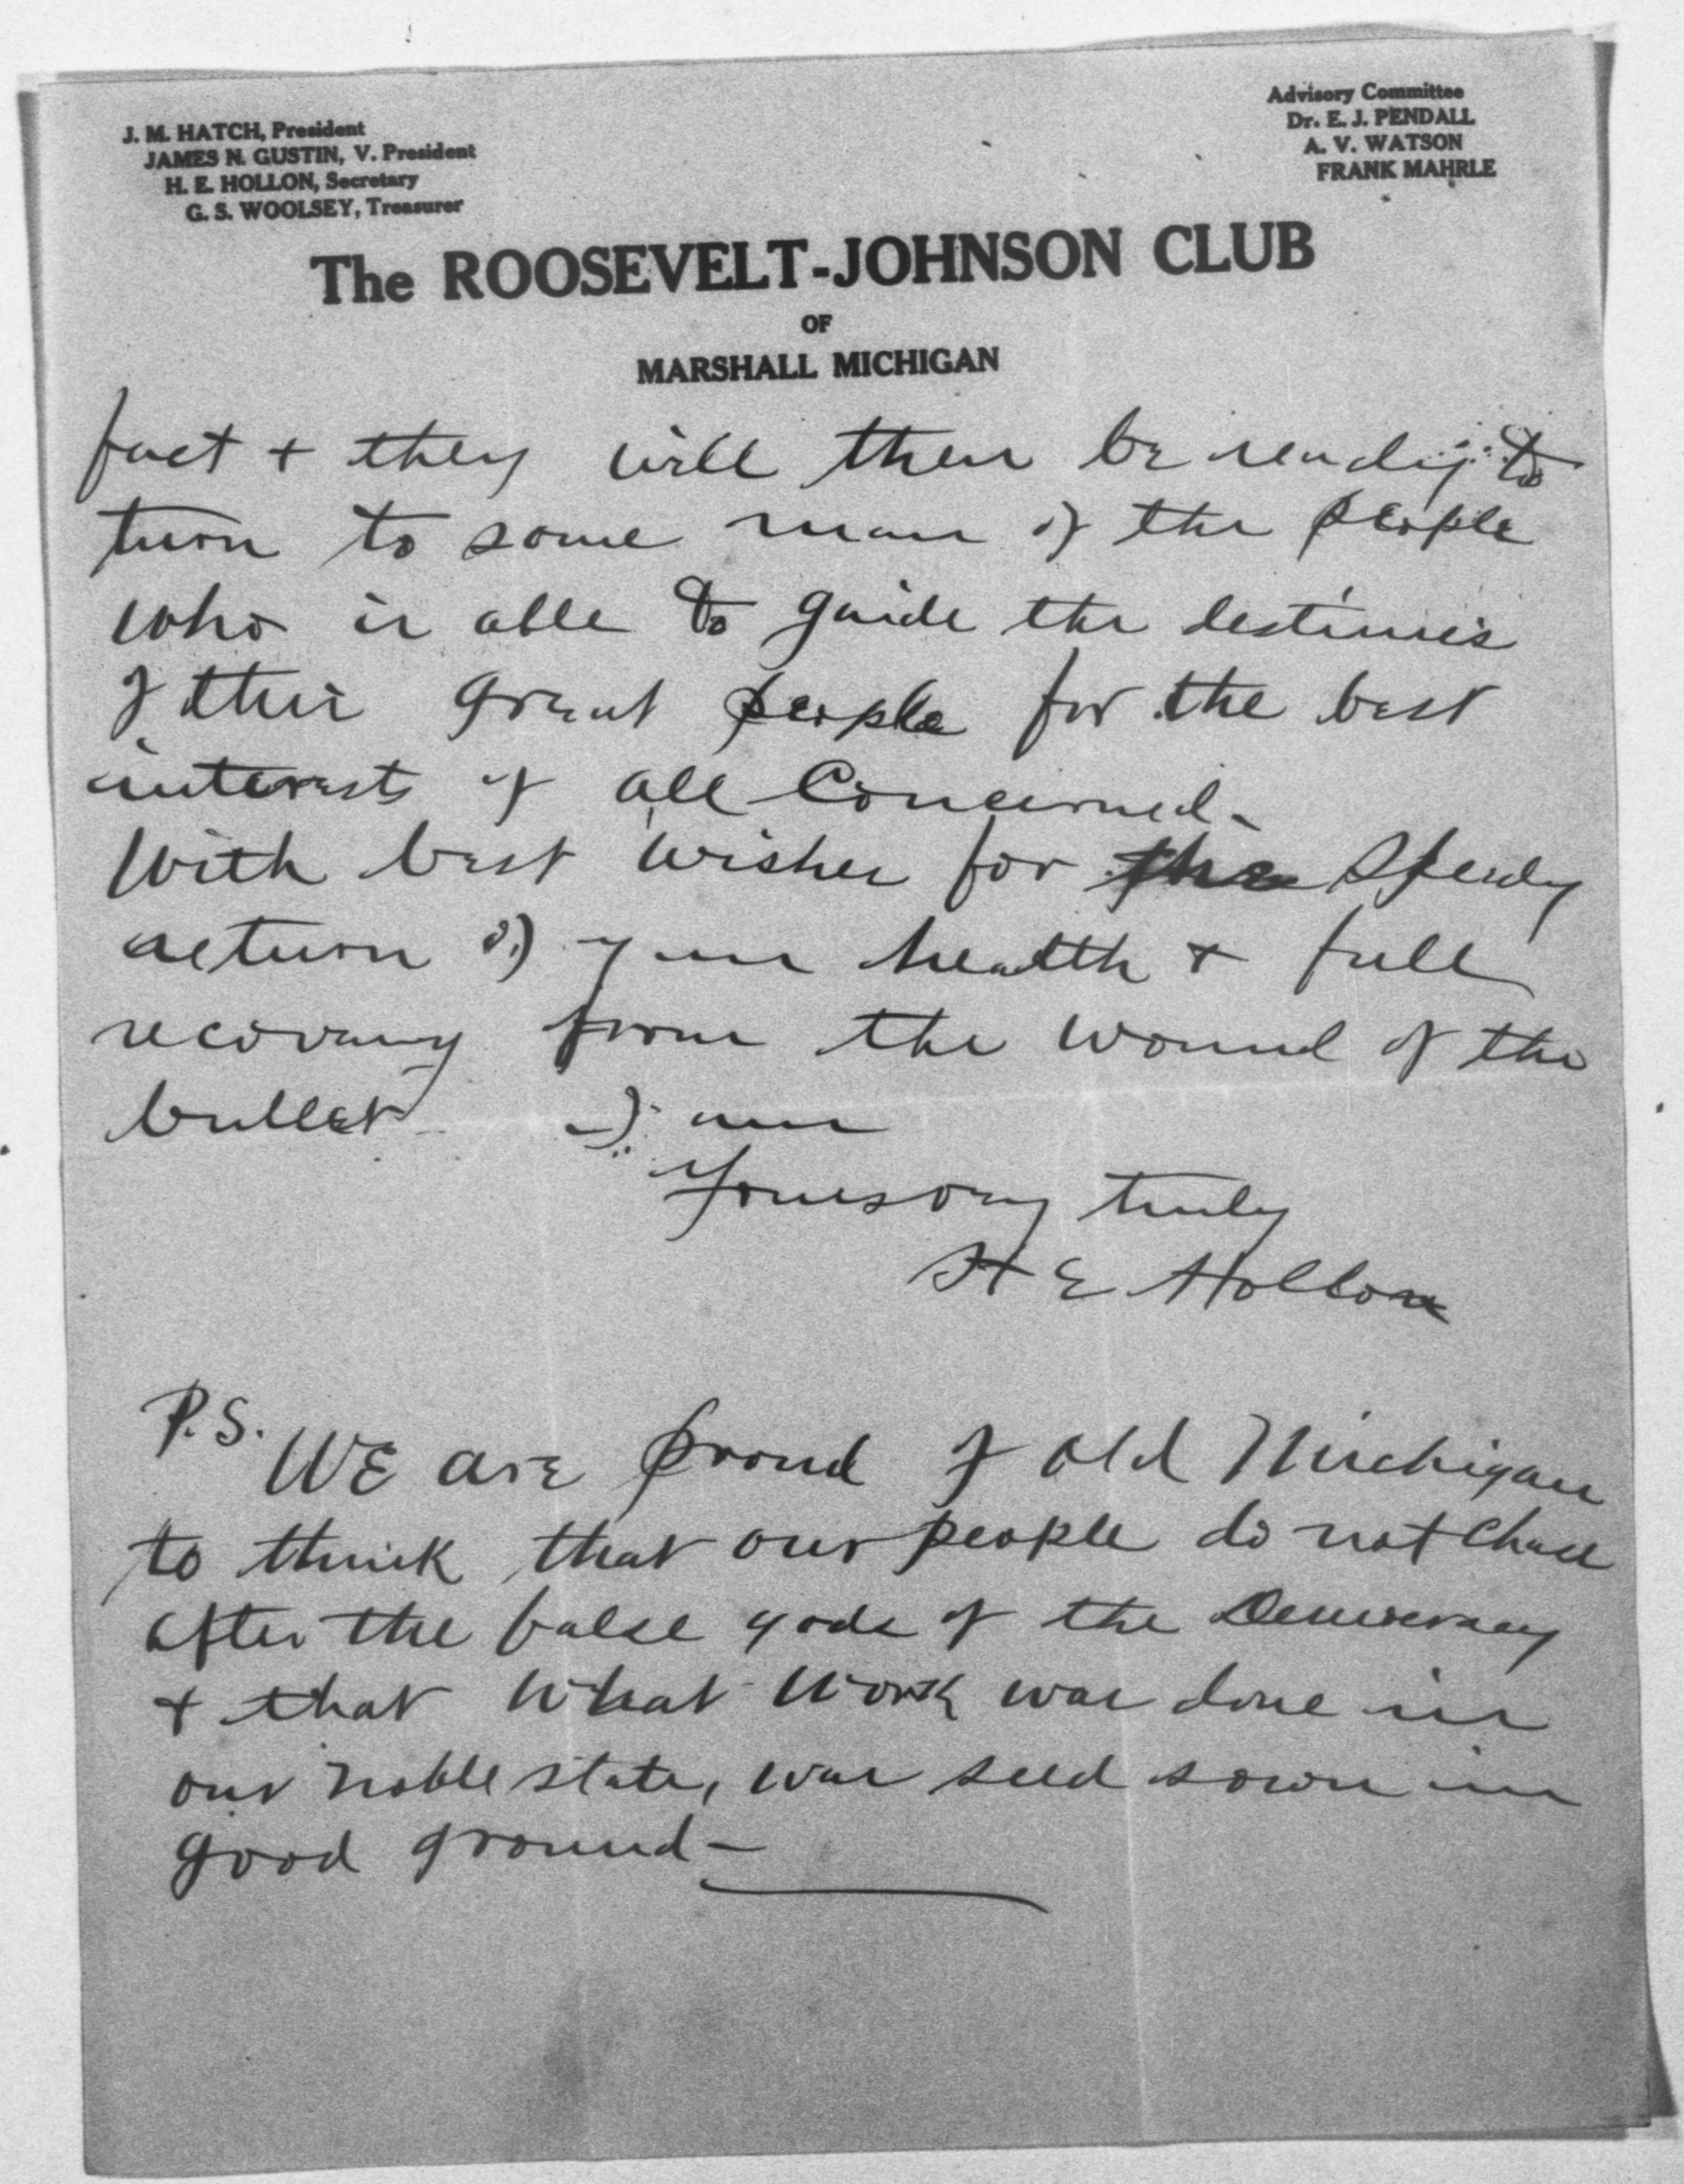 J. M. HATCH, President
JAMES N. GUSTIN, V. President
H. E. HOLLON, Secretary
G. S. WOOLSEY, Treasurer
Advisory Committee
Dr. E. J. PENDALL
A. V. WATSON
FRANK MAHRLE
The ROOSEVELT-JOHNSON CLUB
OF
MARSHALL MICHIGAN
fact + they will then be ready to
turn to some man of the people
who is able to guide the destinies
of this great people for the best
interests of all Concerned-
With best wishes for the Speedy
return of your health + full
recovery from the wound of the
bullet I am
Yours very truly
H E Hollon
P.S. WE are proud of old Michigan
to think that our people do not Chase
after the false gods of the Democracy
+ that what work was done in
our noble state, was seed sown in
good ground-